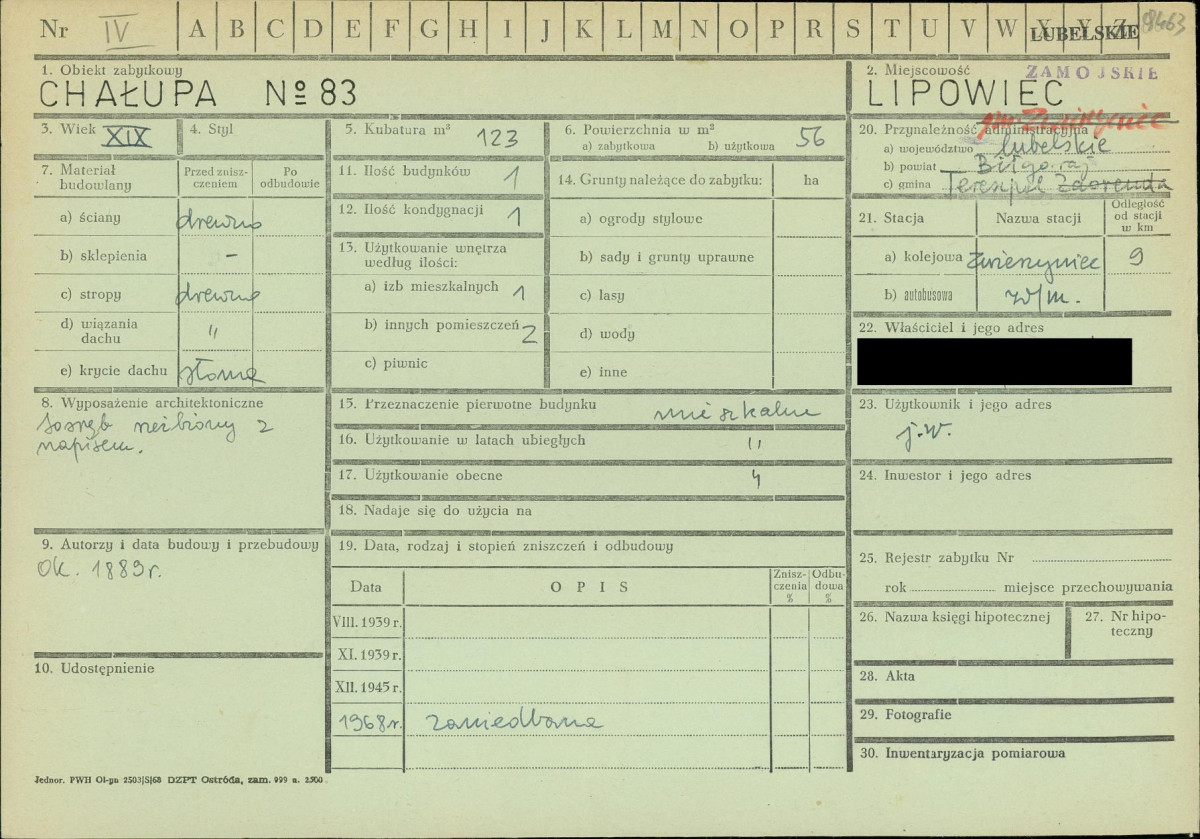 Nr IV A B C D E F G H I J K L M N O P R S T U V W X Y Z LUBELSKIE 8463
1. Obiekt zabytkowy
CHAŁUPA Nº 83
2. Miejscowość ZAMOJSKIE
LIPOWIEC
gm. Zwierzyniec
3. Wiek XIX
4. Styl
5. Kubatura m³ 123
6. Powierzchnia w m² 56
a) zabytkowa b) użytkowa
20. Przynależność administracyjna
a) województwo lubelskie
b) powiat Biłgoraj
c) gmina Tereszpol Zaorenda
7. Materiał budowlany
Przed zniszczeniem
Po odbudowie
a) ściany drewno
b) sklepienia -
c) stropy drewno
d) wiązania dachu "
e) krycie dachu słoma
11. Ilość budynków 1
12. Ilość kondygnacji 1
13. Użytkowanie wnętrza
według ilości:
a) izb mieszkalnych 1
b) innych pomieszczeń 2
c) piwnic
14. Grunty należące do zabytku: ha
a) ogrody stylowe
b) sady i grunty uprawne
c) lasy
d) wody
e) inne
21. Stacja
Nazwa stacji
Odległość
od stacji
w km
a) kolejowa Zwierzyniec 9
b) autobusowa w/m.
22. Właściciel i jego adres
8. Wyposażenie architektoniczne
sosręb rzeźbiony z
napisem.
15. Przeznaczenie pierwotne budynku mieszkalne
16. Użytkowanie w latach ubiegłych "
17. Użytkowanie obecne "
18. Nadaje się do użycia na
23. Użytkownik i jego adres
j.w.
24. Inwestor i jego adres
9. Autorzy i data budowy i przebudowy
Ok. 1889r.
19. Data, rodzaj i stopień zniszczeń i odbudowy
Data
OPIS
Zniszczenia %
Odbudowa %
VIII. 1939 r.
XI. 1939 r.
XII. 1945 r.
1968 r. zaniedbana
25. Rejestr zabytku Nr
rok miejsce przechowywania
26. Nazwa księgi hipotecznej
27. Nr hipoteczny
10. Udostępnienie
28. Akta
29. Fotografie
30. Inwentaryzacja pomiarowa
Jednor. PWH Ol-pn 2503|S|68 DZPT Ostróda, zam. 999 n. 2500